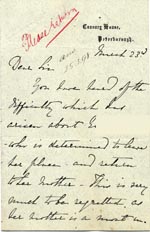 Please return
Canonry House,
Peterborough.
ans
25.3.91
March 23rd
Dear Sir
You have heard of the
difficulty which has
arisen about E
who is determined to leave
her place – and return
to her mother – This is very
much to be regretted as
her mother is a most